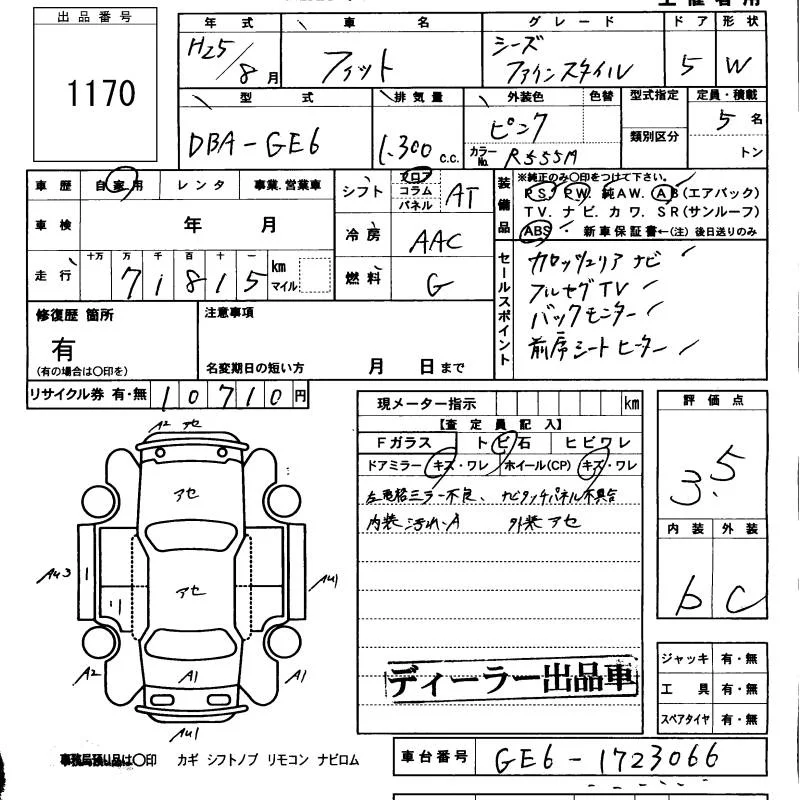 出品番号
1170
年式 車名 グレード ドア 形状
H25/8月 フィット シーズ ファインスタイル 5 W
型式 排気量 外装色 色替 型式指定 定員・積載
DBA-GE6 1.300c.c. ピンク 類別区分 5名
カラーNo. R555M トン
車歴 自家用 レンタ 事業.営業車 シフト フロア コラム パネル AT
装備品 ※純正のみ〇印をつけて下さい。
PS. PW. 純AW. AB(エアバック)
TV. ナビ. カワ. SR(サンルーフ)
ABS 新車保証書←(注) 後日送りのみ
車検 年 月 冷房 AAC
走行 十万 万 千 百 十 一 km マイル
71815 燃料 G
セールスポイント
カロッツェリア ナビ
フルセグTV
バックモニター
前席シートヒーター
修復歴 箇所 注意事項
有
(有の場合は〇印を) 名変期日の短い方 月 日まで
リサイクル券 有・無 10710円
現メーター指示 km
【査定員記入】
Fガラス トビ石 ヒビワレ
ドアミラー キズ・ワレ ホイール(CP) キズ・ワレ
左電格ミラー不良、ナビタッチパネル不具合
内装 汚れ、A 外装 アセ
評価点
3.5
内装 外装
b C
A2 アセ
アセ
AU3 アセ AU1
A2 A1 A1
AU1
ディーラー出品車
ジャッキ 有・無
工具 有・無
スペアタイヤ 有・無
事務局預り品は〇印 カギ シフトノブ リモコン ナビロム
車台番号 GE6-1723066